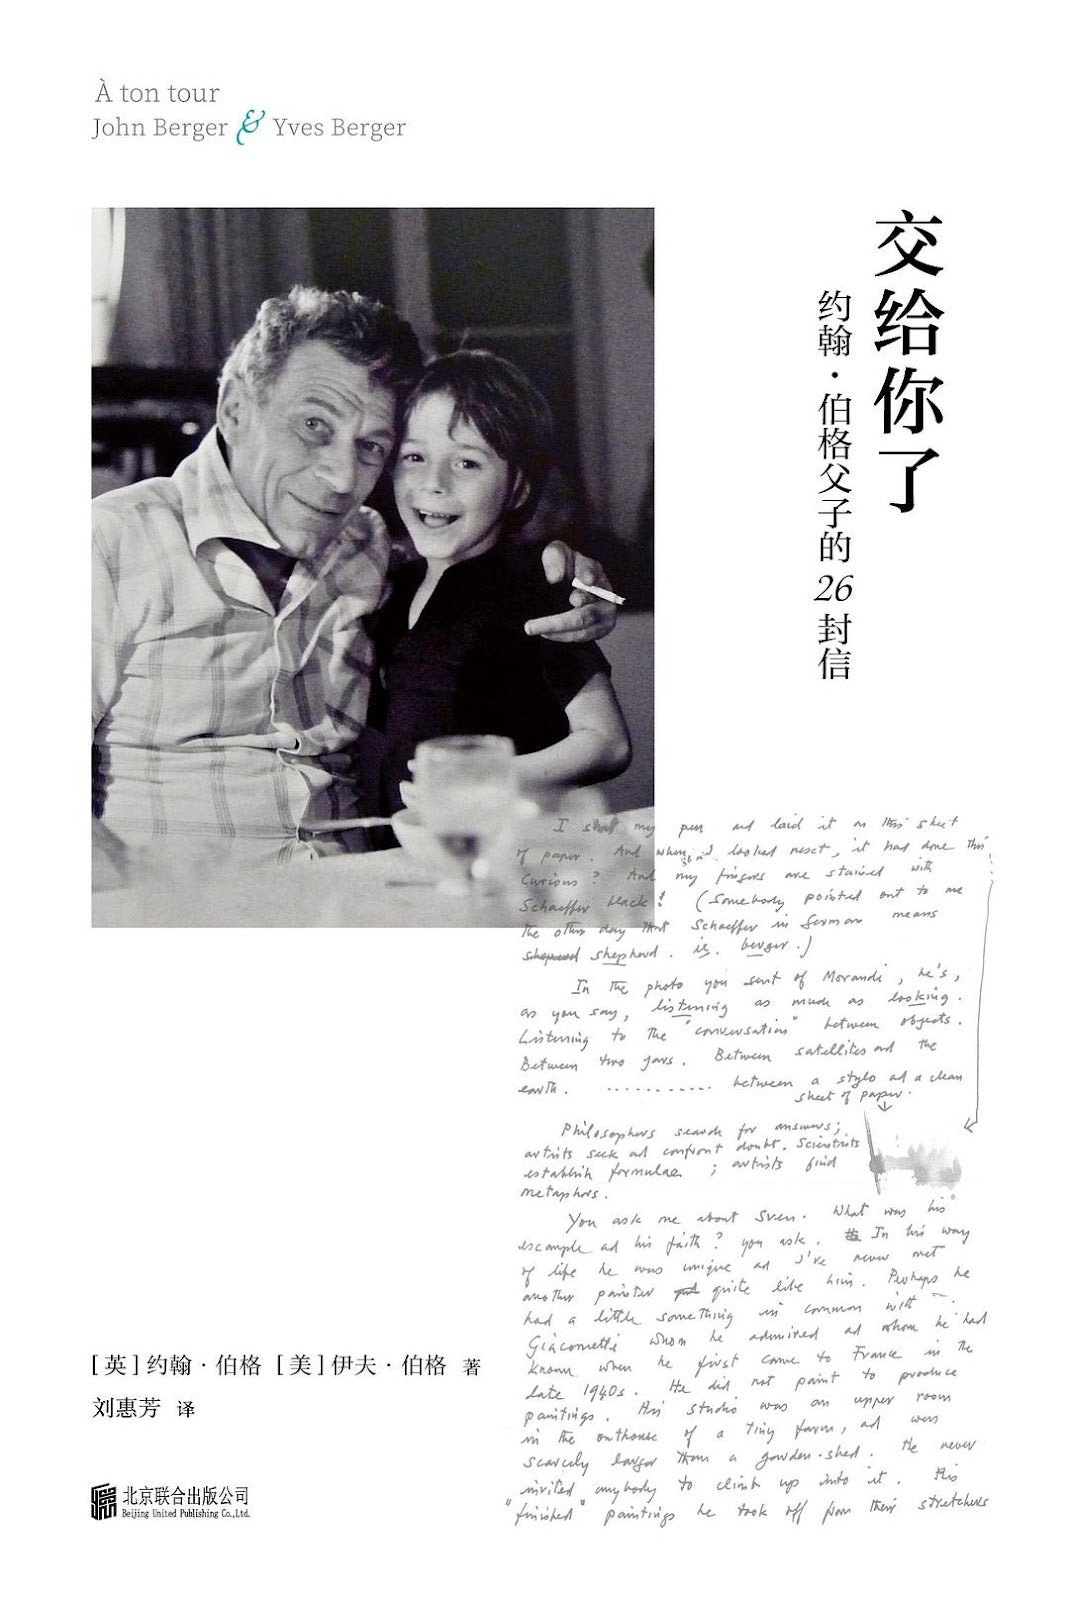 À ton tour
John Berger & Yves Berger
交给你了
约翰·伯格父子的26封信
I shut my pen and laid it on this sheet
of paper. And when I looked next, it had done this
Curious? And my fingers are stained with
Schaeffer black! (Somebody pointed out to me
the other day that Schaeffer in German means
shepherd. ie. berger.)
In the photo you sent of Morandi, he's,
as you say, listening as much as looking.
Listening to the "conversation" between objects.
Between two jars. Between satellites and the
earth. ............ between a stylo and a clean
sheet of paper.
Philosophers search for answers;
artists seek and confront doubt. Scientists
establish formulae; artists find
metaphors.
You ask me about Sven. What was his
example and his faith? you ask. In his way
of life he was unique and I've never met
another painter quite like him. Perhaps he
had a little something in common with
Giacometti whom he admired and whom he had
known when he first came to France in the
late 1940s. He did not paint to produce
paintings. His studio was an upper room
in the outhouse of a tiny farm, and was
scarcely larger than a garden-shed. He never
invited anybody to climb up into it. His
"finished" paintings he took off from their stretchers
[英]约翰·伯格 [美]伊夫·伯格 著
刘惠芳 译
北京联合出版公司
Beijing United Publishing Co.,Ltd.